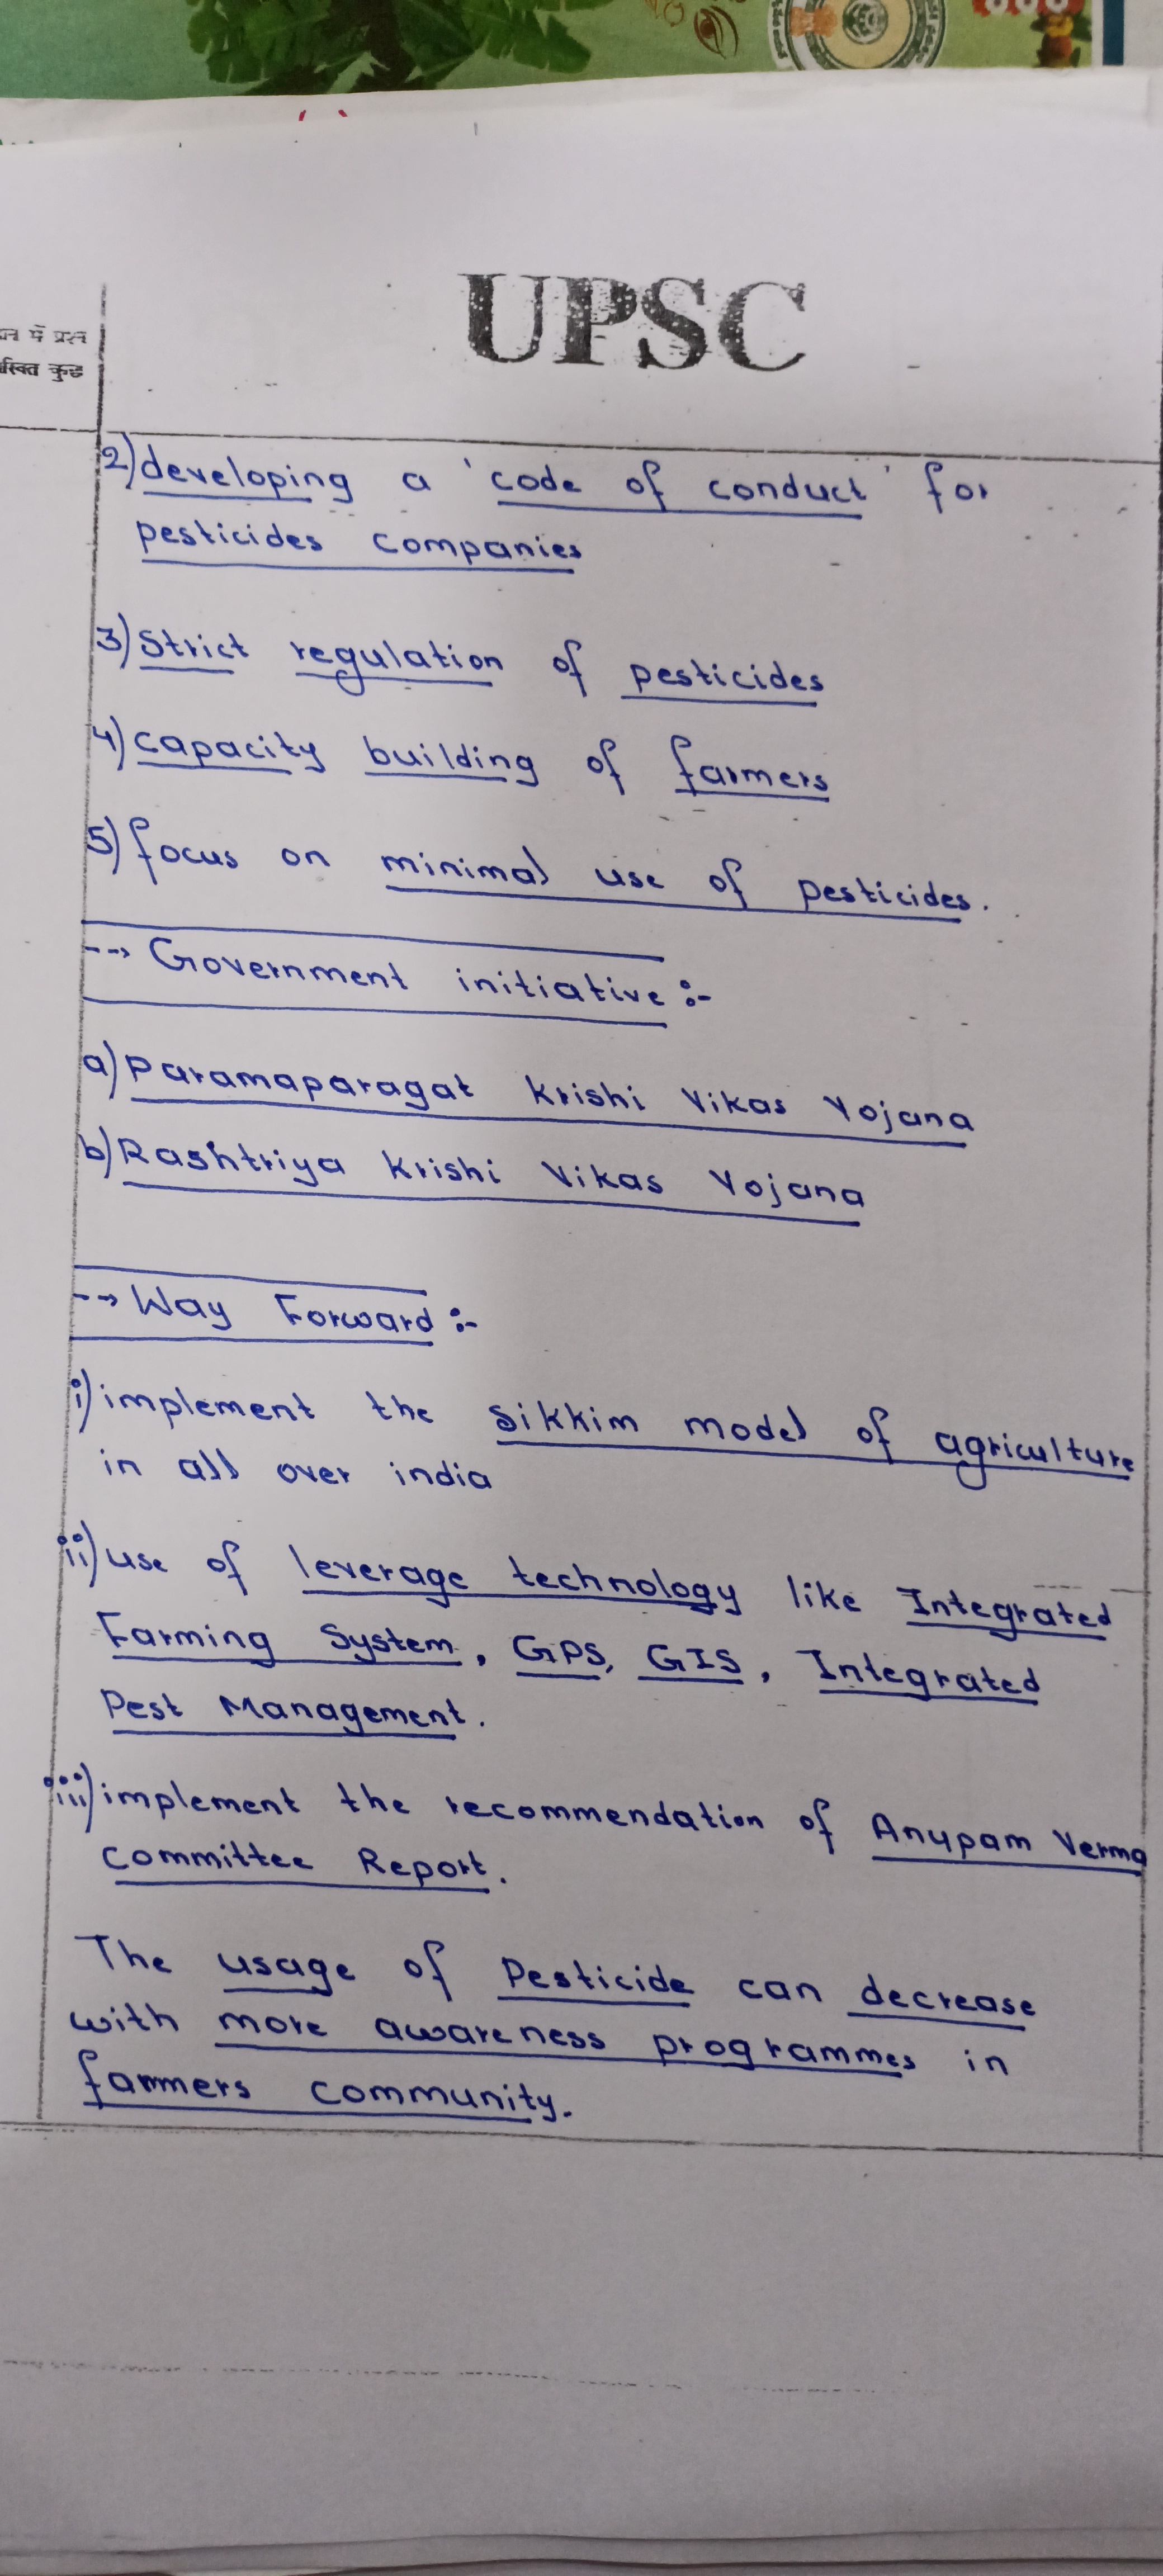 UPSC
न में प्रश्न
रिक्त कुछ
2) developing a 'code of conduct' for
pesticides companies
3) Strict regulation of pesticides
4) capacity building of farmers
5) focus on minimal use of pesticides.
--> Government initiative :-
a) Paramaparagat Krishi Vikas Yojana
b) Rashtriya Krishi Vikas Yojana
--> Way Forward :-
i) implement the Sikkim model of agriculture
in all over india
ii) use of leverage technology like Integrated
Farming System, GPS, GIS, Integrated
Pest Management.
iii) implement the recommendation of Anupam Verma
Committee Report.
The usage of Pesticide can decrease
with more awareness programmes in
farmers community.